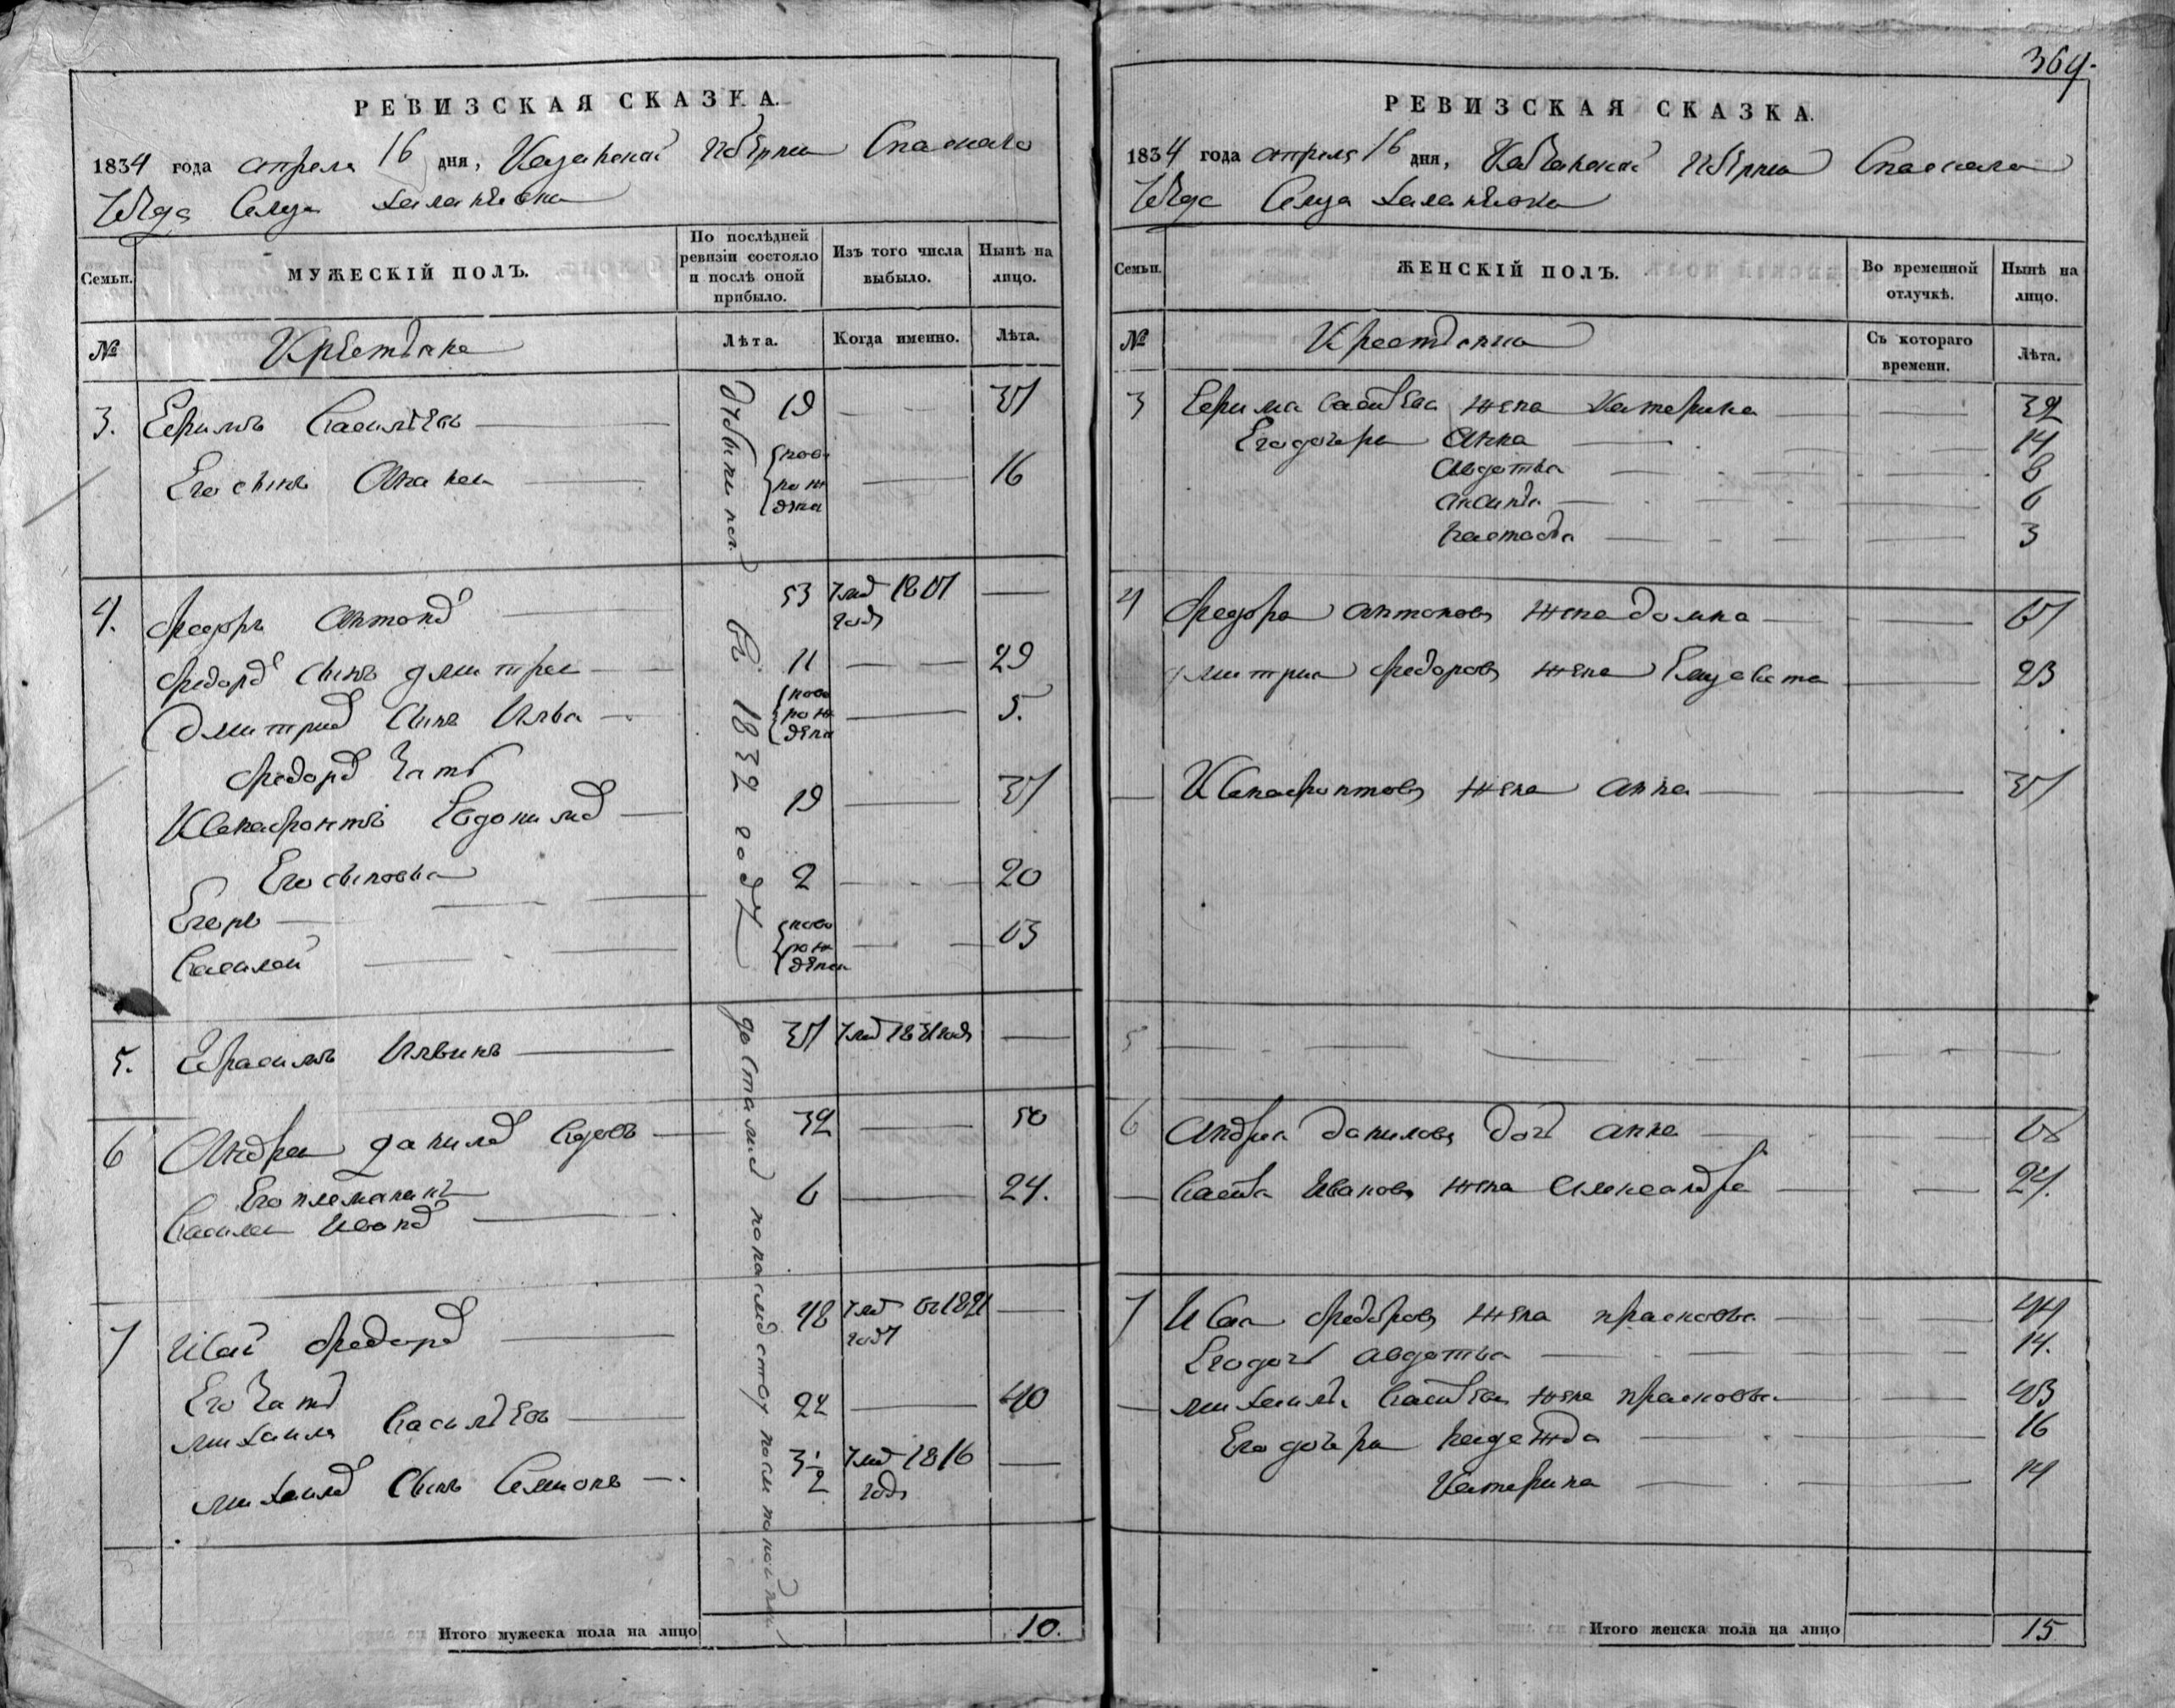 РЕВИЗСКАЯ СКАЗКА.
1834 года апреля 16 дня, Казанской губернии Спаскаго
Уезда Села
Семьи.
МУЖЕСКІЙ ПОЛЪ.
По послѣдней ревизіи состояло и послѣ оной прибыло.
Изъ того числа выбыло.
Нынѣ на лицо.
№
Крестьяне
Лѣта.
Когда именно.
Лѣта.
3. Ефимъ Васильевъ 19 37
Его сынъ 16
новорожденъ
4. Федоръ Антоно 53
году
Федоро сынъ Дмитреи 11 29
Дмитрие сынъ Илья новорожденъ 5.
Федоро зять
Ксенофонтъ 19 37
Его сыновья
Егоръ 2 20
Василей новорожденъ 13
5. Герасимъ 37
6 Андреи Данило 32 50
Его племянникъ
Василеи Ивано 6 24.
7 Иван Федоро 48 1821
году
Его зять
Михаила Васильевъ 22 40
Михаило сынъ Семионъ 3 1/2 1816 —
года
въ 1832 году
Итого мужеска пола на лицо 10.
364.
РЕВИЗСКАЯ СКАЗКА.
1834 года апреля 16 дня, Казанской губернии Спаскаго
Уезда Села
Семьи.
ЖЕНСКІЙ ПОЛЪ.
Во временной отлучкѣ.
Нынѣ на лицо.
№
Крестьянки
Съ котораго времени.
Лѣта.
3 Ефима Васильева жена Катерина 32
Его дочери Анна 14
Авдотья 8
Аксинья 6
Настасья 3
4 Федора Антонова жена Домна
Дмитрия Федорова жена Елизавета 23
Ксенофонтова жена Анна 37
5
6 Андрея Данилова доч Анна
Иванова жена Александра 24.
7 Ивана Федорова жена Прасковья 44
Его доч Авдотья 14.
Михаила Васильева жена Прасковья 43
Его дочери Надежда 16
Катерина 14
Итого женска пола на лицо 15